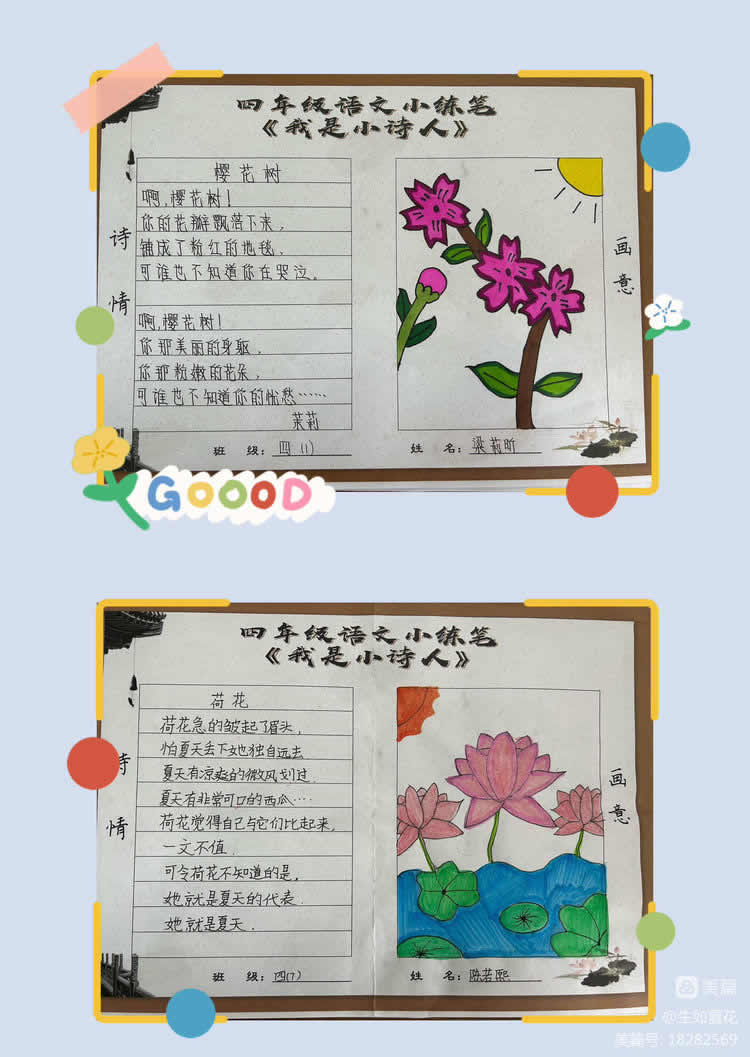 四年级语文小练笔
《我是小诗人》
诗情
樱花树
啊，樱花树！
你的花瓣飘落下来，
铺成了粉红的地毯，
可谁也不知道你在哭泣。
啊，樱花树！
你那美丽的身躯，
你那粉嫩的花朵，
可谁也不知道你的忧愁……
茉莉
画意
班 级：四（1）
姓 名：梁莉昕
GOOOD
四年级语文小练笔
《我是小诗人》
诗情
荷花
荷花急的皱起了眉头，
怕夏天丢下她独自远去
夏天有凉爽的微风划过．
夏天有非常可口的西瓜…
荷花觉得自己与它们比起来，
一文不值．
可令荷花不知道的是，
她就是夏天的代表．
她就是夏天．
画意
班 级：四（7）
姓 名：陈若熙
美篇
@生如夏花
美篇号：18282569